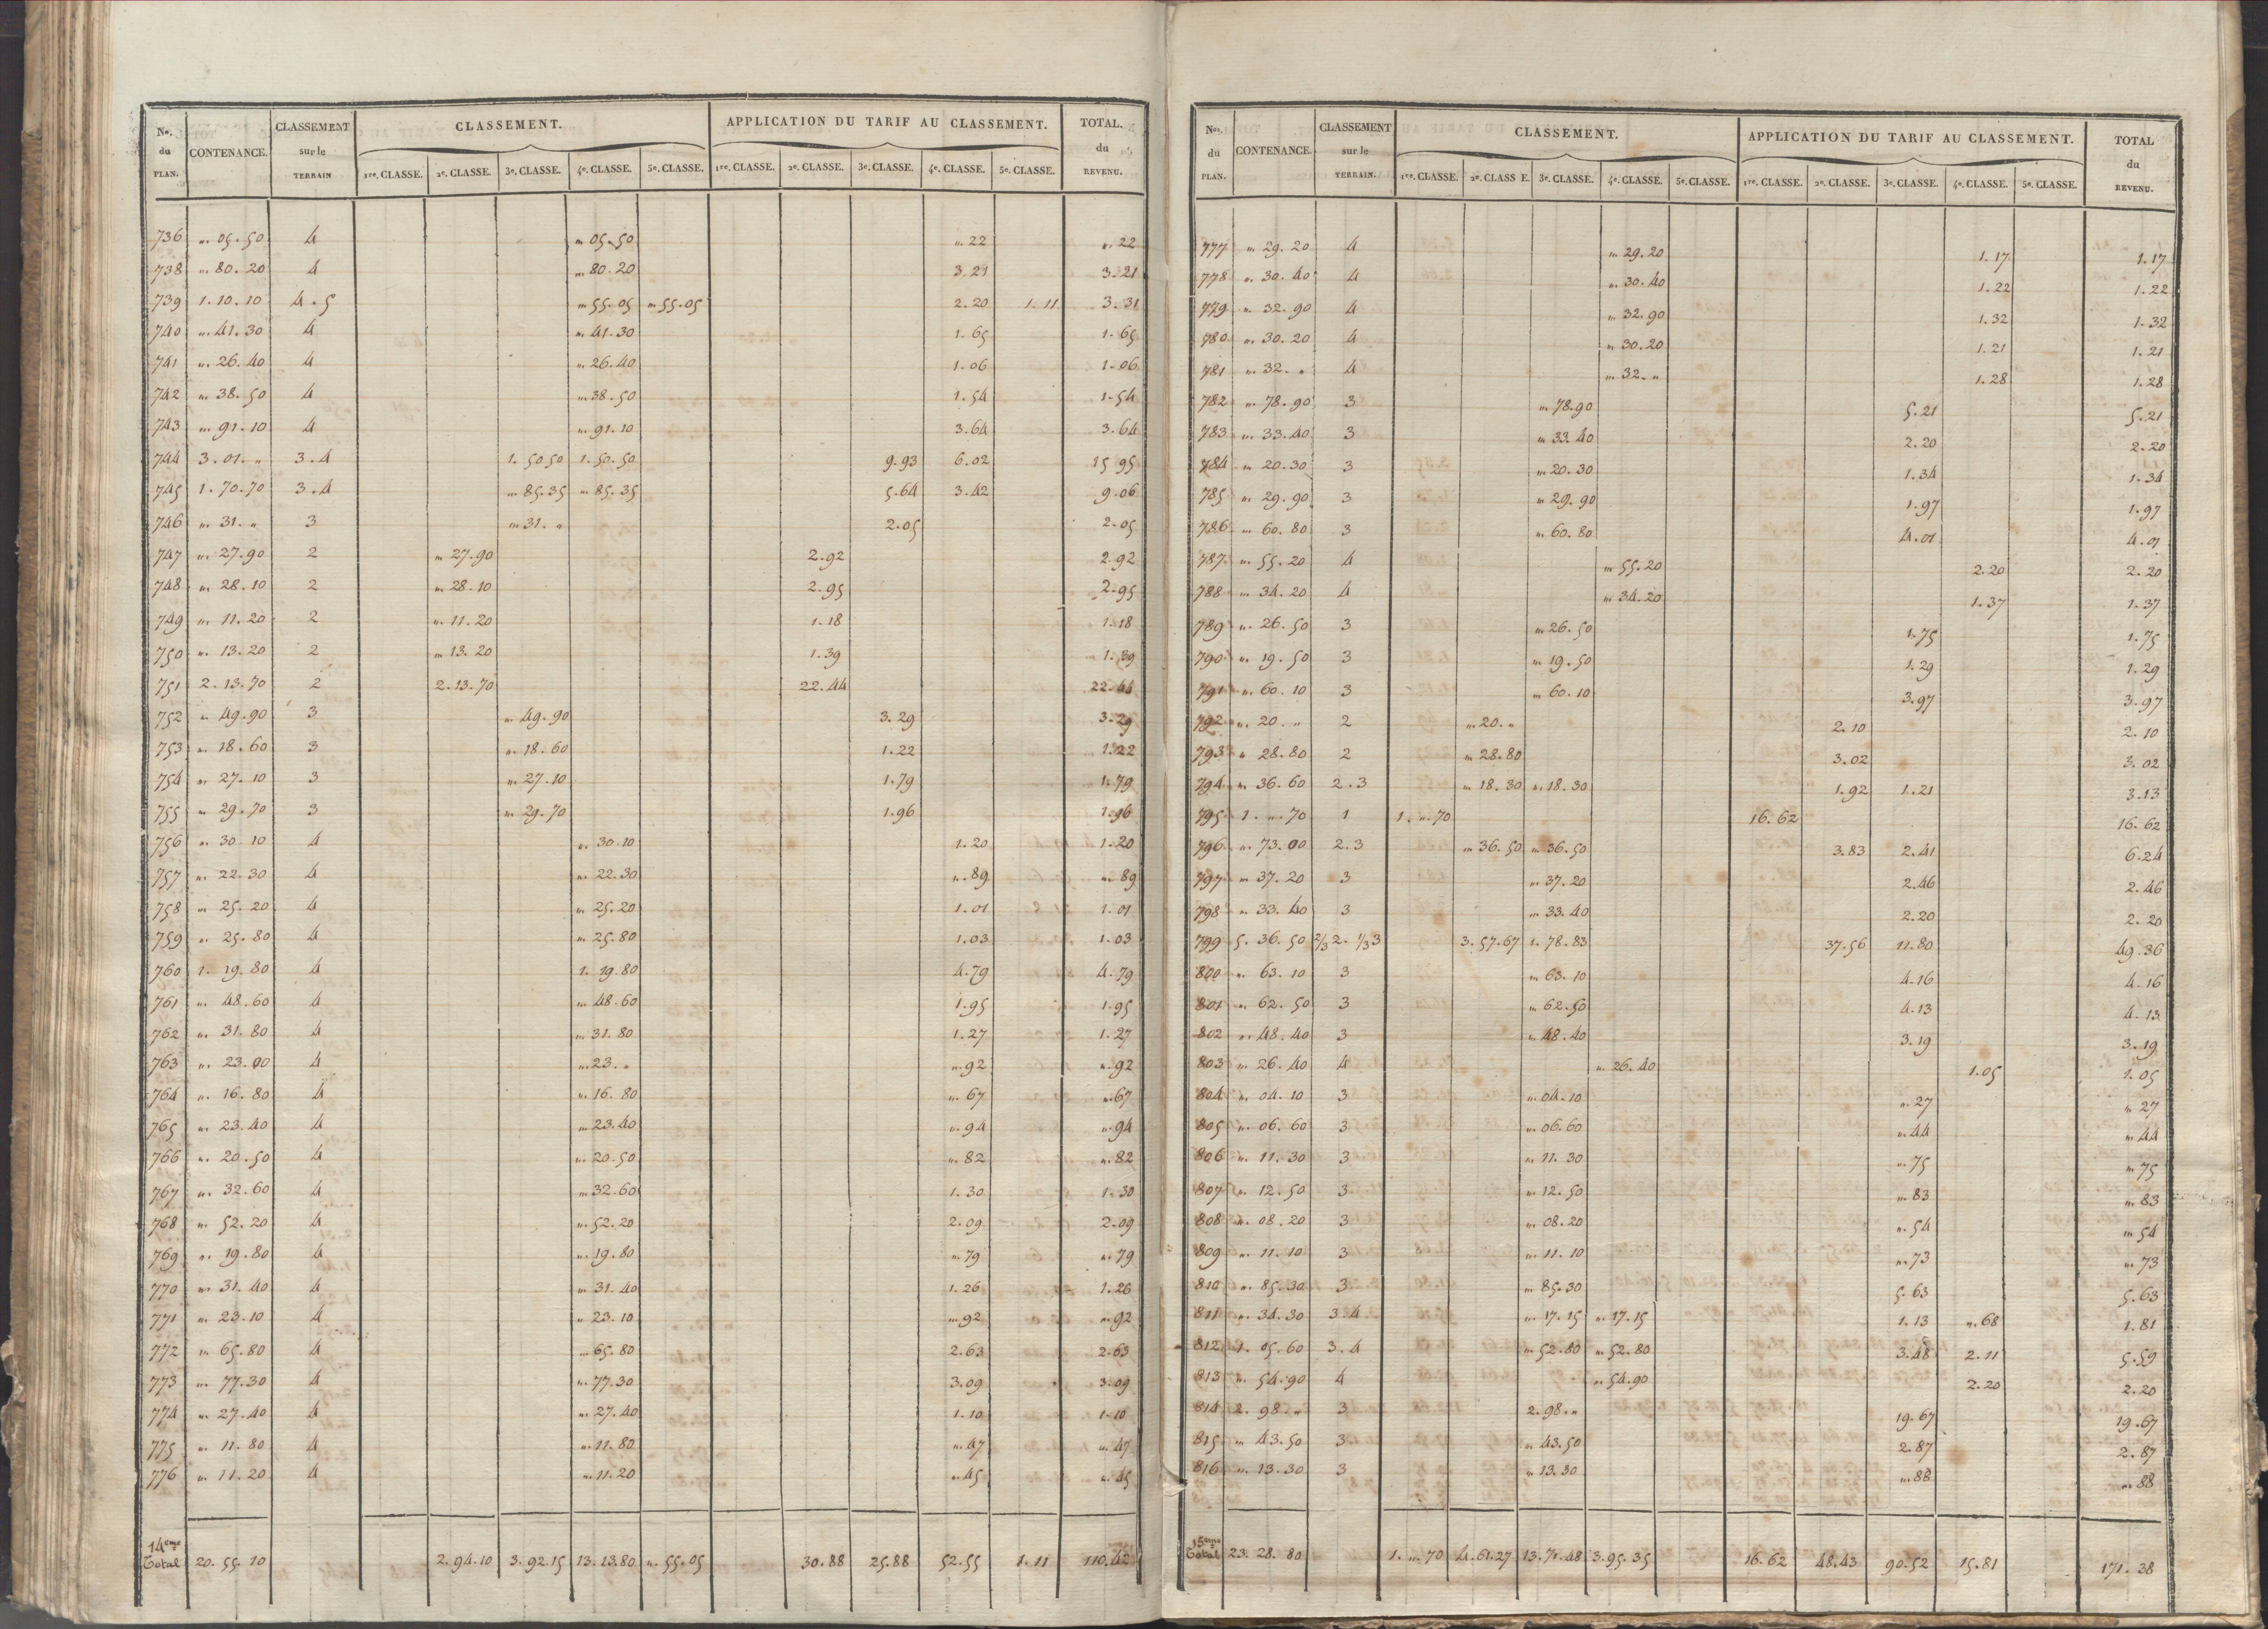 Nos. du PLAN. CONTENANCE. CLASSEMENT sur le TERRAIN CLASSEMENT. APPLICATION DU TARIF AU CLASSEMENT. TOTAL. du REVENU.
1re. CLASSE. 2e. CLASSE. 3e. CLASSE. 4e. CLASSE. 5e. CLASSE. 1re. CLASSE. 2e. CLASSE. 3e. CLASSE. 4e. CLASSE. 5e. CLASSE.
736 " 05.50 4 " 05.50 " 22 " 22
738 " 80.20 4 " 80.20 3.21 3.21
739 1.10.10 4.5 " 55.05 " 55.05 2.20 1.11 3.31
740 " 41.30 4 " 41.30 1.65 1.65
741 " 26.40 4 " 26.40 1.06 1.06
742 " 38.50 4 " 38.50 1.54 1.54
743 " 91.10 4 " 91.10 3.64 3.64
744 3.01. " 3.4 1.50 50 1.50.50 9.93 6.02 15 95
745 1.70.70 3.4 " 85.35 " 85.35 5.64 3.42 9.06
746 " 31. " 3 " 31. " 2.05 2.05
747 " 27.90 2 " 27.90 2.92 2.92
748 " 28.10 2 " 28.10 2.95 2.95
749 " 11.20 2 " 11.20 1.18 1.18
750 " 13.20 2 " 13.20 1.39 1.39
751 2.13.70 2 2.13.70 22.44 22.44
752 " 49.90 3 " 49.90 3.29 3.29
753 " 18.60 3 " 18.60 1.22 1.22
754 " 27.10 3 " 27.10 1.79 1.79
755 " 29.70 3 " 29.70 1.96 1.96
756 " 30.10 4 " 30.10 1.20 1.20
757 " 22.30 4 " 22.30 " 89 " 89
758 " 25.20 4 " 25.20 1.01 1.01
759 " 25.80 4 " 25.80 1.03 1.03
760 1.19.80 4 1.19.80 4.79 4.79
761 " 48.60 4 " 48.60 1.95 1.95
762 " 31.80 4 " 31.80 1.27 1.27
763 " 23.00 4 " 23. " " 92 " 92
764 " 16.80 4 " 16.80 " 67 " 67
765 " 23.40 4 " 23.40 " 94 " 94
766 " 20.50 4 " 20.50 " 82 " 82
767 " 32.60 4 " 32.60 1.30 1.30
768 " 52.20 4 " 52.20 2.09 2.09
769 " 19.80 4 " 19.80 " 79 " 79
770 " 31.40 4 " 31.40 1.26 1.26
771 " 23.10 4 " 23.10 " 92 " 92
772 " 65.80 4 " 65.80 2.63 2.63
773 " 77.30 4 " 77.30 3.09 3.09
774 " 27.40 4 " 27.40 1.10 1.10
775 " 11.80 4 " 11.80 " 47 " 47
776 " 11.20 4 " 11.20 " 45 " 45
14eme Total 20.55.10 2.94.10 3.92.15 13.13.80 " 55.05 30.88 25.88 52.55 1.11 110.42
Nos. du PLAN. CONTENANCE. CLASSEMENT sur le TERRAIN. CLASSEMENT. APPLICATION DU TARIF AU CLASSEMENT. TOTAL du REVENU.
1re. CLASSE. 2e. CLASS E. 3e. CLASSE. 4e. CLASSE. 5e. CLASSE. 1re. CLASSE. 2e. CLASSE. 3e. CLASSE. 4e. CLASSE. 5e. CLASSE.
777 " 29.20 4 " 29.20 1.17 1.17
778 " 30.40 4 " 30.40 1.22 1.22
779 " 32.90 4 " 32.90 1.32 1.32
780 " 30.20 4 " 30.20 1.21 1.21
781 " 32. " 4 " 32. " 1.28 1.28
782 " 78.90 3 " 78.90 5.21 5.21
783 " 33.40 3 " 33.40 2.20 2.20
784 " 20.30 3 " 20.30 1.34 1.34
785 " 29.90 3 " 29.90 1.97 1.97
786 " 60.80 3 " 60.80 4.01 4.01
787 " 55.20 4 " 55.20 2.20 2.20
788 " 34.20 4 " 34.20 1.37 1.37
789 " 26.50 3 " 26.50 1.75 1.75
790 " 19.50 3 " 19.50 1.29 1.29
791 " 60.10 3 " 60.10 3.97 3.97
792 " 20. " 2 " 20. " 2.10 2.10
793 " 28.80 2 " 28.80 3.02 3.02
794 " 36.60 2.3 " 18.30 " 18.30 1.92 1.21 3.13
795 1. " .70 1 1. " .70 16.62 16.62
796 " 73.00 2.3 " 36.50 " 36.50 3.83 2.41 6.24
797 " 37.20 3 " 37.20 2.46 2.46
798 " 33.40 3 " 33.40 2.20 2.20
799 5.36.50 2/3 2. 1/3 3 3.57.67 1.78.83 37.56 11.80 49.36
800 " 63.10 3 " 63.10 4.16 4.16
801 " 62.50 3 " 62.50 4.13 4.13
802 " 48.40 3 " 48.40 3.19 3.19
803 " 26.40 4 " 26.40 1.05 1.05
804 " 04.10 3 " 04.10 " 27 " 27
805 " 06.60 3 " 06.60 " 44 " 44
806 " 11.30 3 " 11.30 " 75 " 75
807 " 12.50 3 " 12.50 " 83 " 83
808 " 08.20 3 " 08.20 " 54 " 54
809 " 11.10 3 " 11.10 " 73 " 73
810 " 85.30 3 " 85.30 5.63 5.63
811 " 34.30 3.4 " 17.15 " 17.15 1.13 " 68 1.81
812 1.05.60 3.4 " 52.80 " 52.80 3.48 2.11 5.59
813 " 54.90 4 " 54.90 2.20 2.20
814 2.98. " 3 2.98. " 19.67 19.67
815 " 43.50 3 " 43.50 2.87 2.87
816 " 13.30 3 " 13.30 " 88 " 88
15eme Total 23.28.80 1. " .70 4.61.27 13.71.48 3.95.35 16.62 48.43 90.52 15.81 171.38